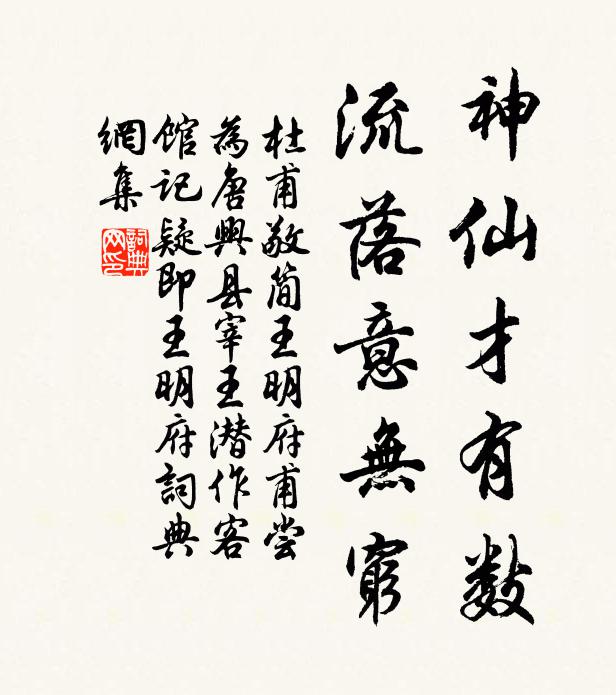 神仙才有数
流落意無窮
杜甫敬简王明府甫尝
為唐興县宰王潜作客
馆记疑即王明府詞典
網集
詞典网印